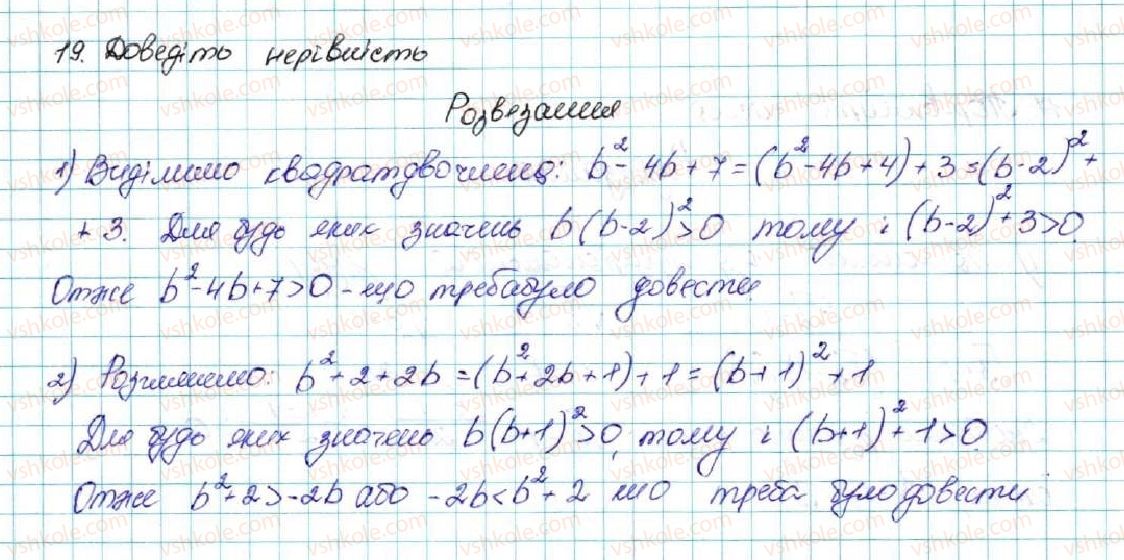 19. Доведіть нерівність
Розвезання
1) Виділимо квадратдвочлена: b² - 4b + 7 = (b² - 4b + 4) + 3 = (b - 2)² +
+ 3. Для будь яких значень b (b - 2)² > 0 тому і (b - 2)² + 3 > 0.
Отже b² - 4b + 7 > 0 - що требабуло довести.
2) Розглянемо: b² + 2 + 2b = (b² + 2b + 1) + 1 = (b + 1)² + 1
Для будь яких значень b (b + 1)² > 0, тому і (b + 1)² + 1 > 0.
Отже b² + 2 > -2b або -2b < b² + 2 що треба було довести